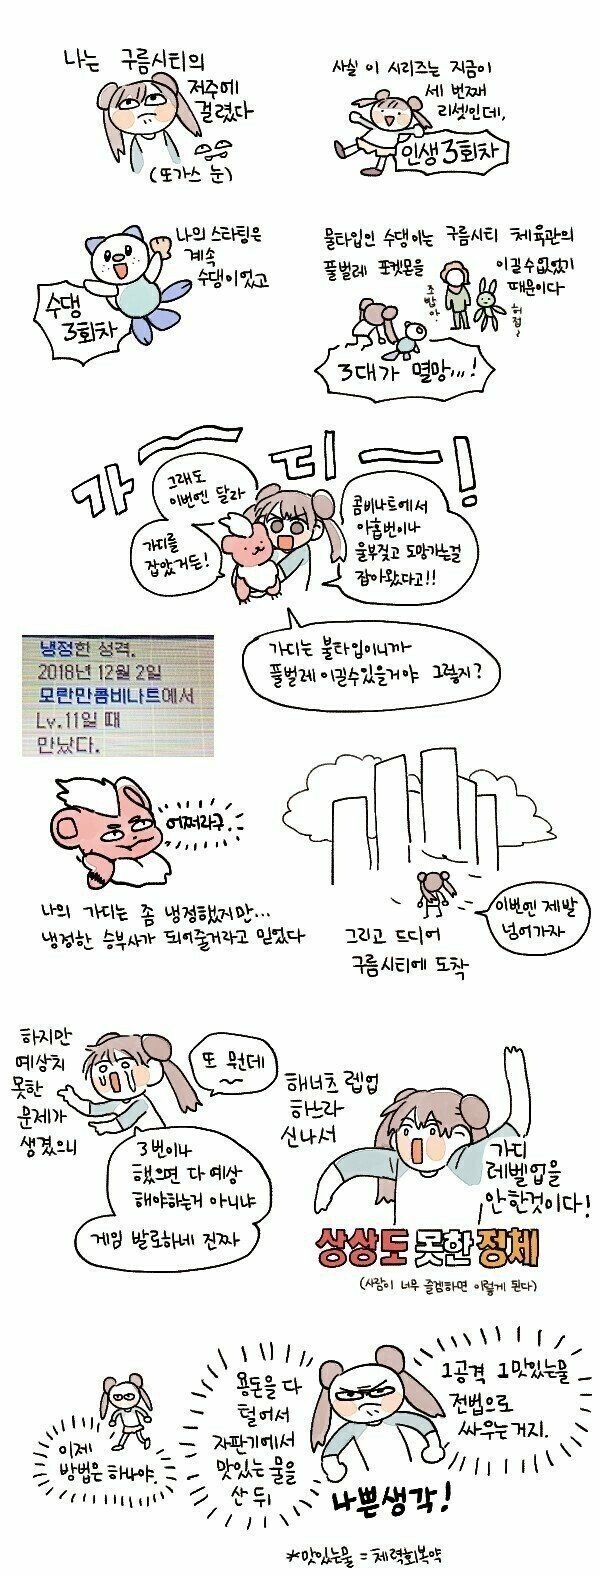 나는 구름시티의
저주에
걸렸다
(또가스 눈)
사실 이 시리즈는 지금이
세 번째
리셋인데,
인생 3회차
나의 스타팅은
계속
수댕이었고
수댕
3회차
물타입인 수댕이는 구름시티 체육관의
풀벌레 포켓몬을 이길 수 없었기
때문이다
초밥아..
허접~
3대가 멸망,,,!
가ㅡ디ㅡ!
그래도
이번엔 달라
가디를
잡았거든!
콤비나트에서
아홉번이나
울부짖고 도망가는걸
잡아왔다고!!
가디는 불타입이니까
풀벌레 이길수있을거야 그렇지?
냉정한 성격.
2018년 12월 2일
모란만콤비나트에서
Lv.11일 때
만났다.
어쩌라구
나의 가디는 좀 냉정했지만...
냉정한 승부사가 되어줄거라고 믿었다
이번엔 제발
넘어가자
그리고 드디어
구름시티에 도착
하지만
예상치
못한
문제가
생겼으니
또 뭔데
3번이나
했으면 다 예상
해야하는거 아니냐
게임 발로하네 진짜
해너츠 렙업
하느라
신나서
가디
레벨업을
안한것이다!
상상도 못한 정체
(사람이 너무 즐겜하면 이렇게 된다)
이제
방법은 하나야.
용돈을 다
털어서
자판기에서
맛있는 물을
산 뒤
1공격 1맛있는물
전법으로
싸우는거지.
나쁜생각!
*맛있는물 = 체력회복약